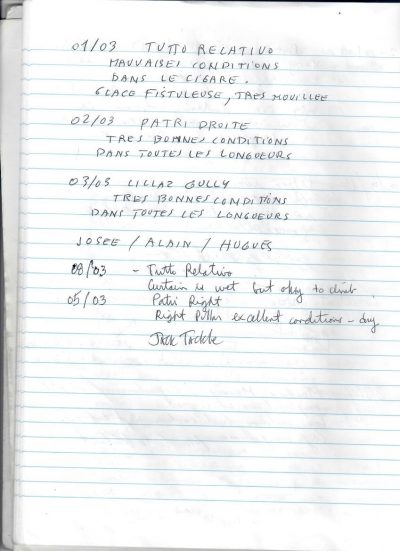 01/03 TUTTO RELATIVO
MAUVAISES CONDITIONS
DANS LE CIGARE.
GLACE FISTULEUSE, TRES MOUILLEE
02/03 PATRI DROITE
TRES BONNES CONDITIONS
DANS TOUTES LES LONGUEURS
03/03 LILLAZ GULLY
TRES BONNES CONDITIONS
DANS TOUTES LES LONGUEURS
JOSEE / ALAIN / HUGUES
08/03 - Tutto Relativo
Curtain is wet but okay to climb.
05/03 Patri Right
Right Pillar excellent conditions - dry
Jack